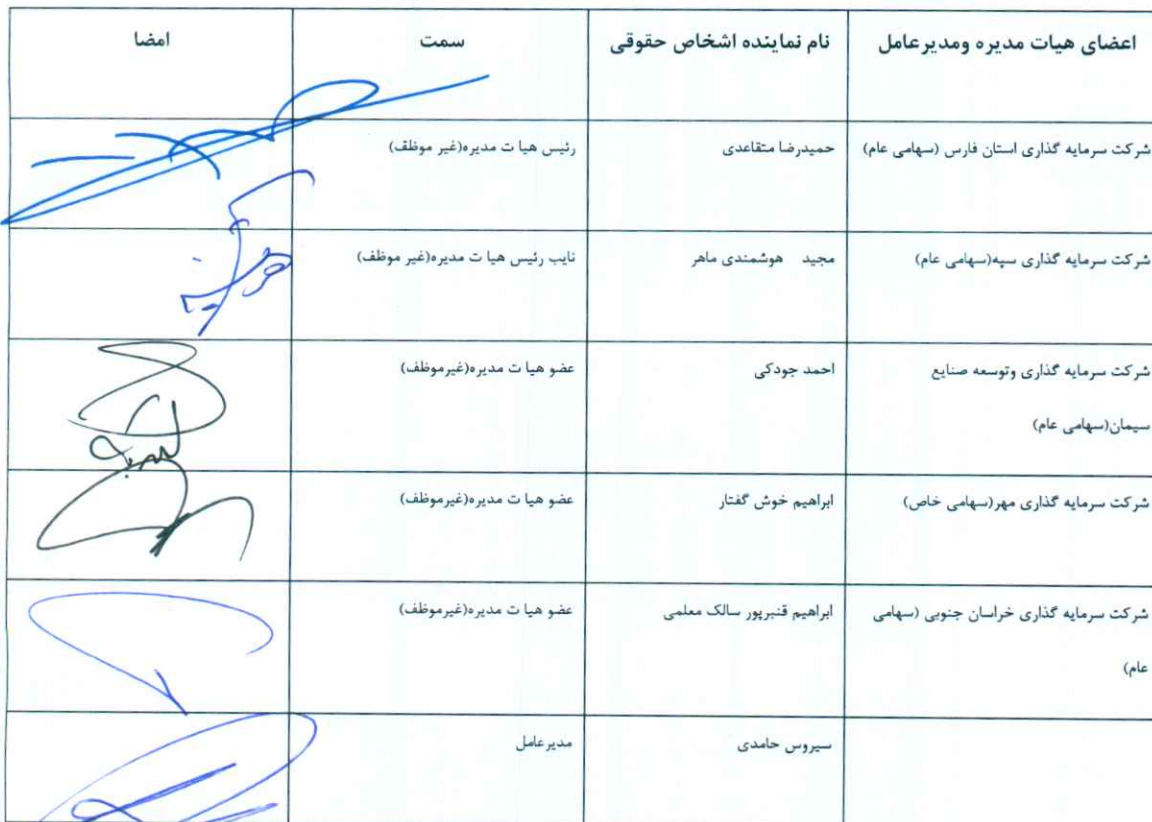 اعضای هیات مدیره ومدیرعامل	نام نماینده اشخاص حقوقی	سمت	امضا
شرکت سرمایه گذاری استان فارس (سهامی عام)	حمیدرضا متقاعدی	رئیس هیا ت مدیره(غیر موظف)
شرکت سرمایه گذاری سپه(سهامی عام)	مجید هوشمندی ماهر	نایب رئیس هیا ت مدیره(غیر موظف)
شرکت سرمایه گذاری وتوسعه صنایع	احمد جودکی	عضو هیا ت مدیره(غیرموظف)
سیمان(سهامی عام)
شرکت سرمایه گذاری مهر(سهامی خاص)	ابراهیم خوش گفتار	عضو هیا ت مدیره(غیرموظف)
شرکت سرمایه گذاری خراسان جنوبی (سهامی	ابراهیم قنبرپور سالک معلمی	عضو هیا ت مدیره(غیرموظف)
عام)
سیروس حامدی	مدیرعامل